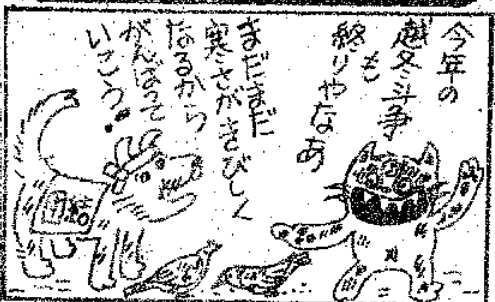 今年の
越冬斗争
も
終りやなあ
まだまだ
寒さがきびしく
なるから
がんばって
いこう。
団結